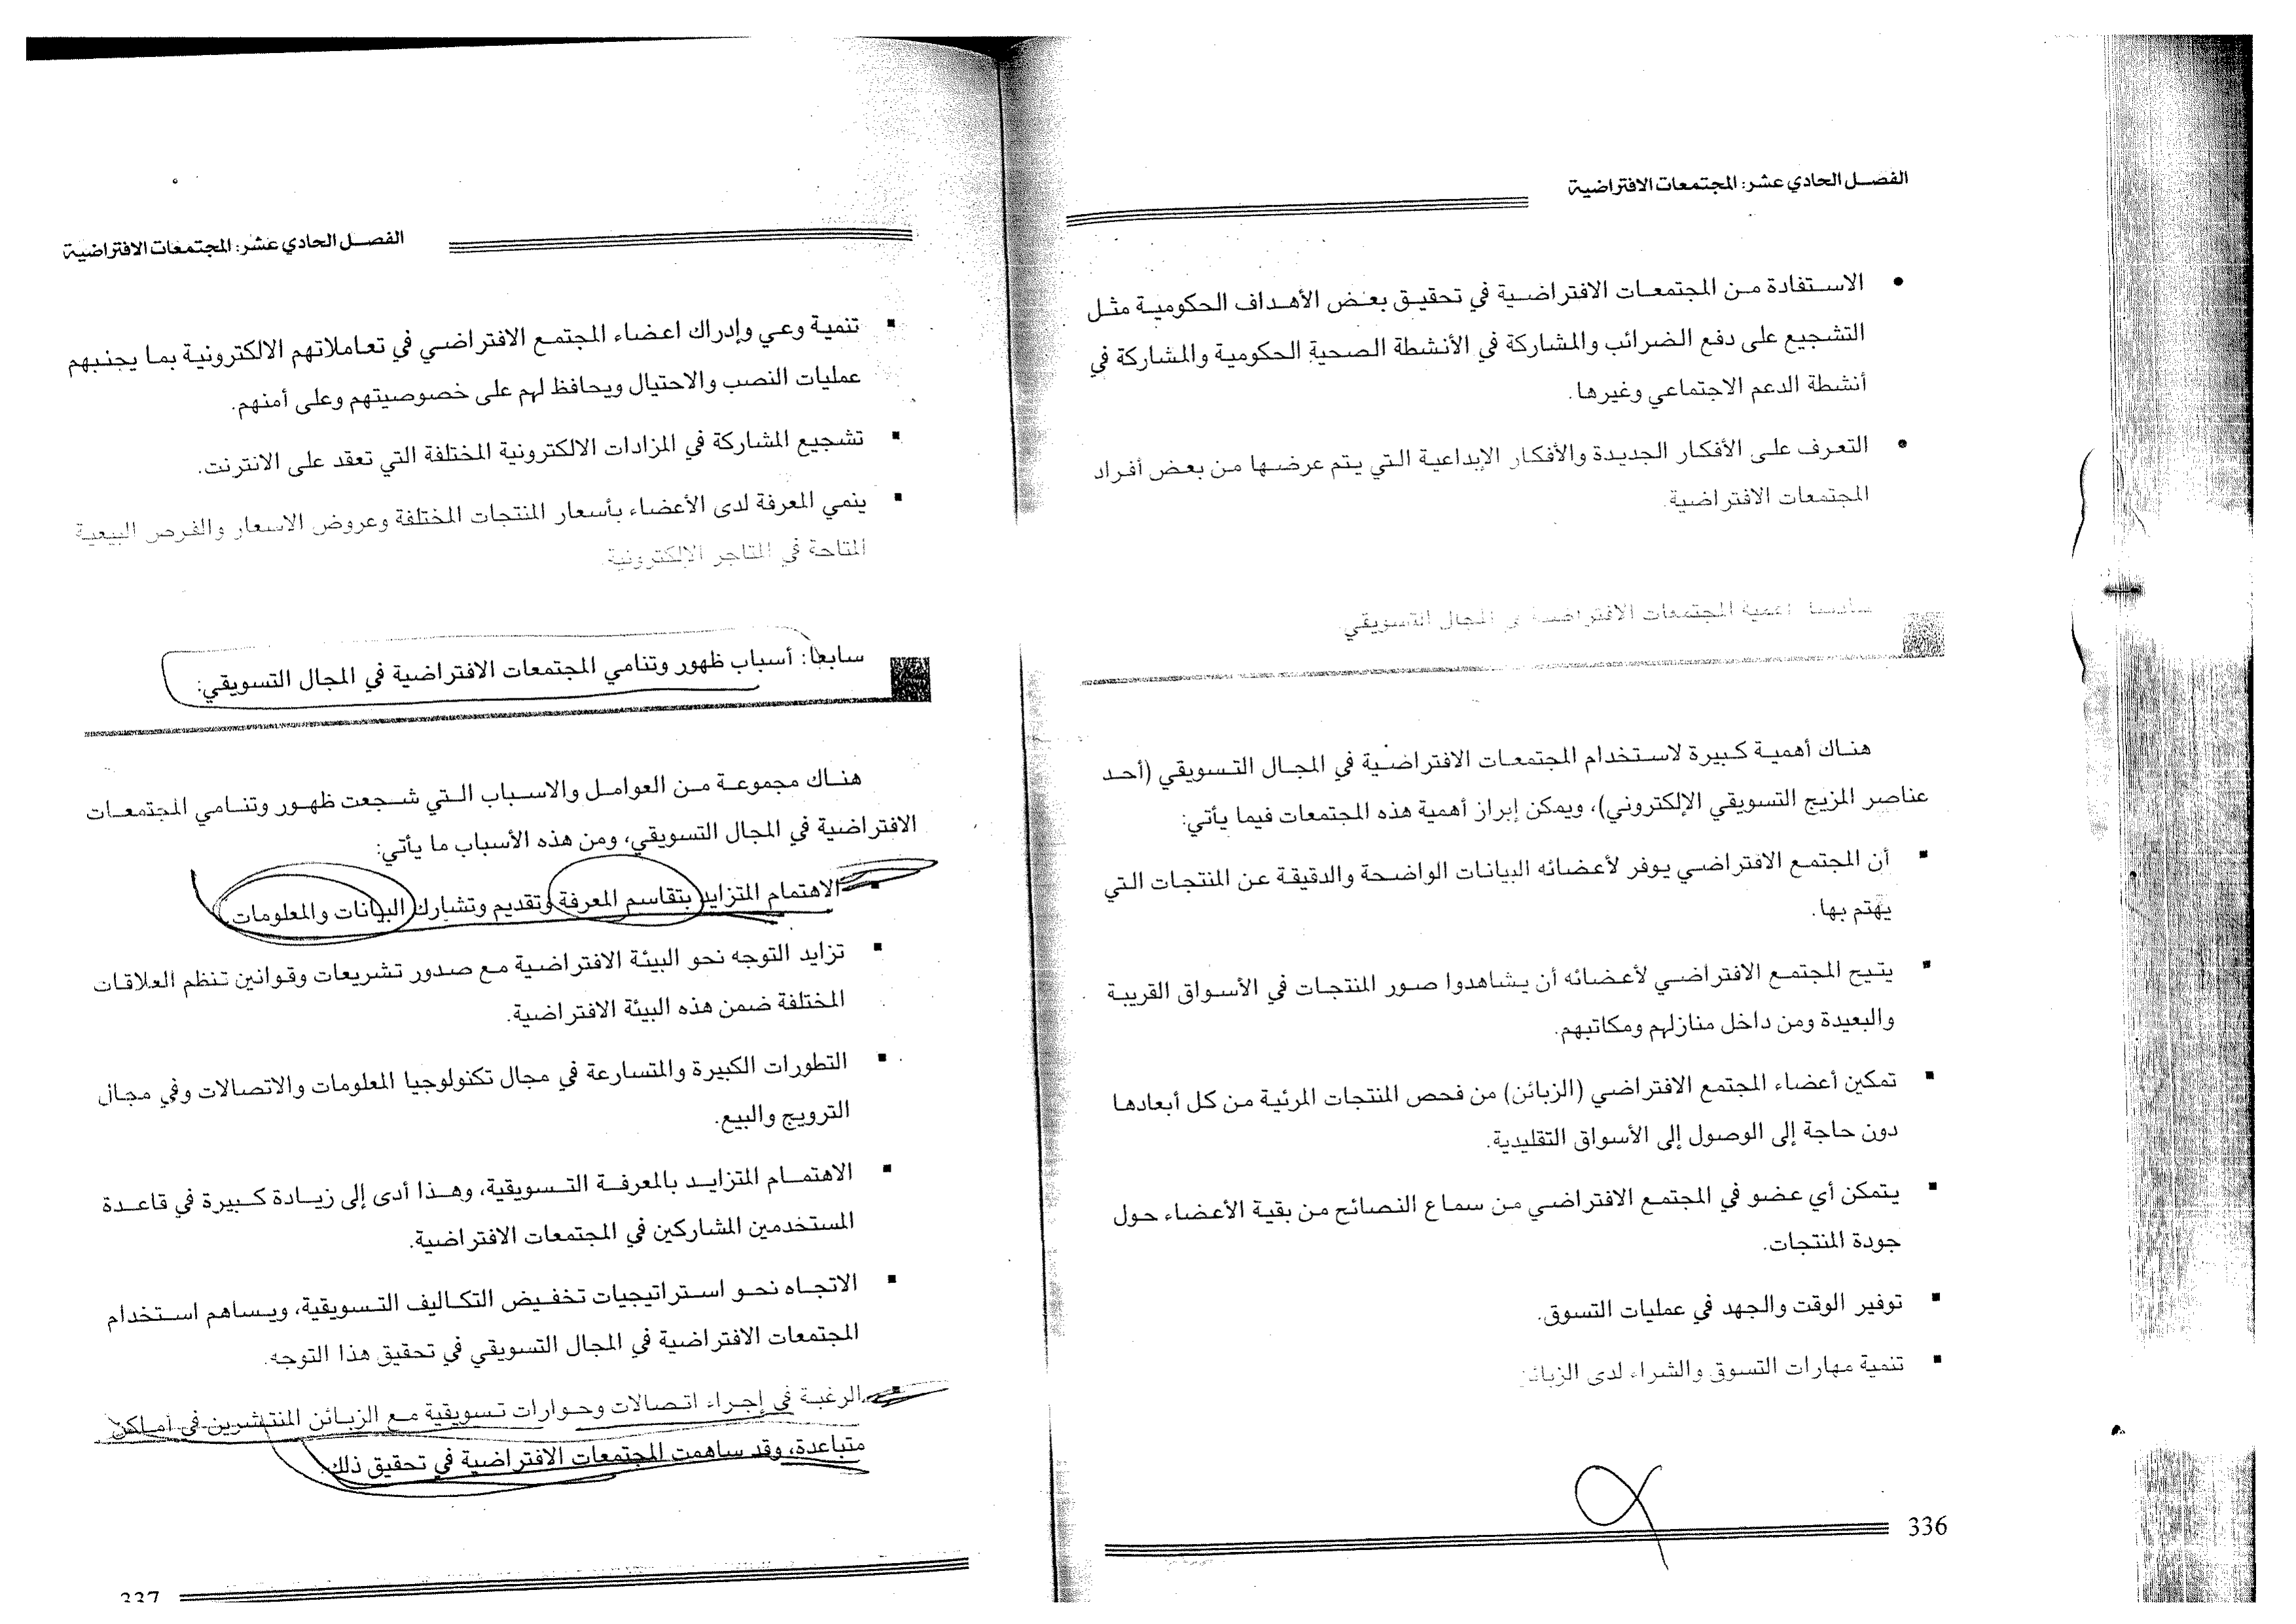 الفصل الحادي عشر: المجتمعات الافتراضية
• الاستفادة من المجتمعات الافتراضية في تحقيق بعض الأهداف الحكومية مثل
التشجيع على دفع الضرائب والمشاركة في الأنشطة الصحية الحكومية والمشاركة في
أنشطة الدعم الاجتماعي وغيرها.
• التعرف على الأفكار الجديدة والأفكار الإبداعية التي يتم عرضها من بعض أفراد
المجتمعات الافتراضية.
سادسا: أهمية المجتمعات الافتراضية في المجال التسويقي:
هناك أهمية كبيرة لاستخدام المجتمعات الافتراضية في المجال التسويقي (أحد
عناصر المزيج التسويقي الإلكتروني)، ويمكن إبراز أهمية هذه المجتمعات فيما يأتي:
▪ أن المجتمع الافتراضي يوفر لأعضائه البيانات الواضحة والدقيقة عن المنتجات التي
يهتم بها.
▪ يتيح المجتمع الافتراضي لأعضائه أن يشاهدوا صور المنتجات في الأسواق القريبة
والبعيدة ومن داخل منازلهم ومكاتبهم.
▪ تمكين أعضاء المجتمع الافتراضي (الزبائن) من فحص المنتجات المرئية من كل أبعادها
دون حاجة إلى الوصول إلى الأسواق التقليدية.
▪ يتمكن أي عضو في المجتمع الافتراضي من سماع النصائح من بقية الأعضاء حول
جودة المنتجات.
▪ توفير الوقت والجهد في عمليات التسوق.
▪ تنمية مهارات التسوق والشراء لدى الزبائن
336
الفصل الحادي عشر: المجتمعات الافتراضية
▪ تنمية وعي وإدراك اعضاء المجتمع الافتراضي في تعاملاتهم الالكترونية بما يجنبهم
عمليات النصب والاحتيال ويحافظ لهم على خصوصيتهم وعلى أمنهم.
▪ تشجيع المشاركة في المزادات الالكترونية المختلفة التي تعقد على الانترنت.
▪ ينمي المعرفة لدى الأعضاء بأسعار المنتجات المختلفة وعروض الاسعار والفرص البيعية
المتاحة في المتاجر الإلكترونية.
سابعا: أسباب ظهور وتنامي المجتمعات الافتراضية في المجال التسويقي:
هناك مجموعة من العوامل والاسباب التي شجعت ظهور وتنامي المجتمعات
الافتراضية في المجال التسويقي، ومن هذه الأسباب ما يأتي:
▪ الاهتمام المتزايد بتقاسم المعرفة وتقديم وتشارك البيانات والمعلومات.
▪ تزايد التوجه نحو البيئة الافتراضية مع صدور تشريعات وقوانين تنظم العلاقات
المختلفة ضمن هذه البيئة الافتراضية.
▪ التطورات الكبيرة والمتسارعة في مجال تكنولوجيا المعلومات والاتصالات وفي مجال
الترويج والبيع.
▪ الاهتمام المتزايد بالمعرفة التسويقية، وهذا أدى إلى زيادة كبيرة في قاعدة
المستخدمين المشاركين في المجتمعات الافتراضية.
▪ الاتجاه نحو استراتيجيات تخفيض التكاليف التسويقية، ويساهم استخدام
المجتمعات الافتراضية في المجال التسويقي في تحقيق هذا التوجه.
▪ الرغبة في إجراء اتصالات وحوارات تسويقية مع الزبائن المنتشرين في أماكن
متباعدة، وقد ساهمت المجتمعات الافتراضية في تحقيق ذلك.
337